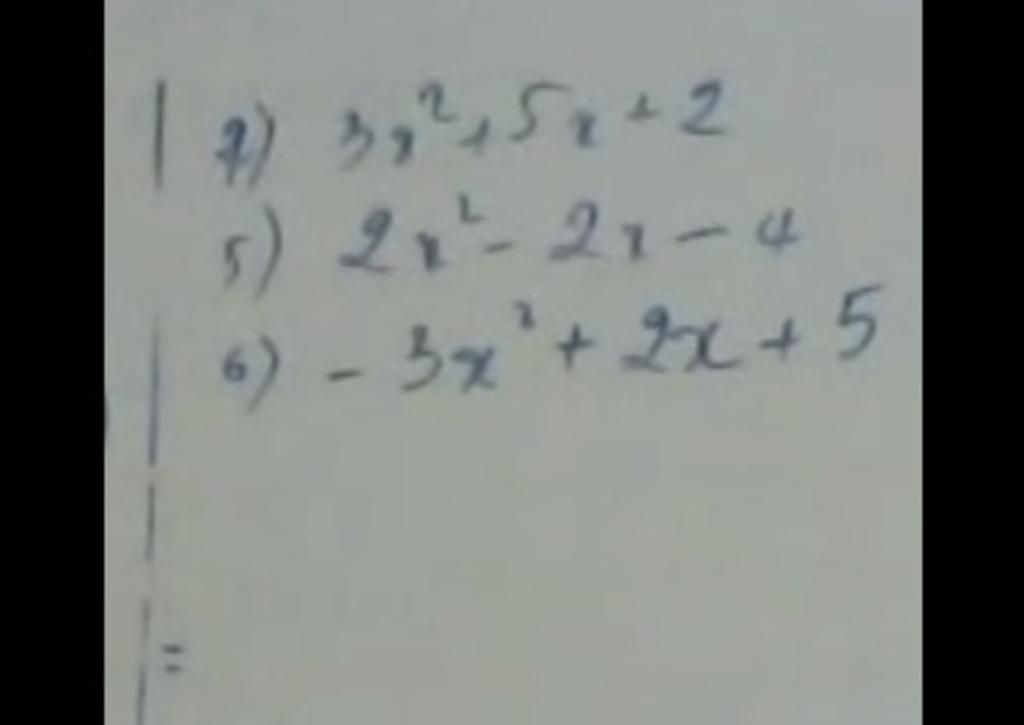 4) 3x² + 5x + 2
5) 2x² - 2x - 4
6) - 3x² + 2x + 5
=